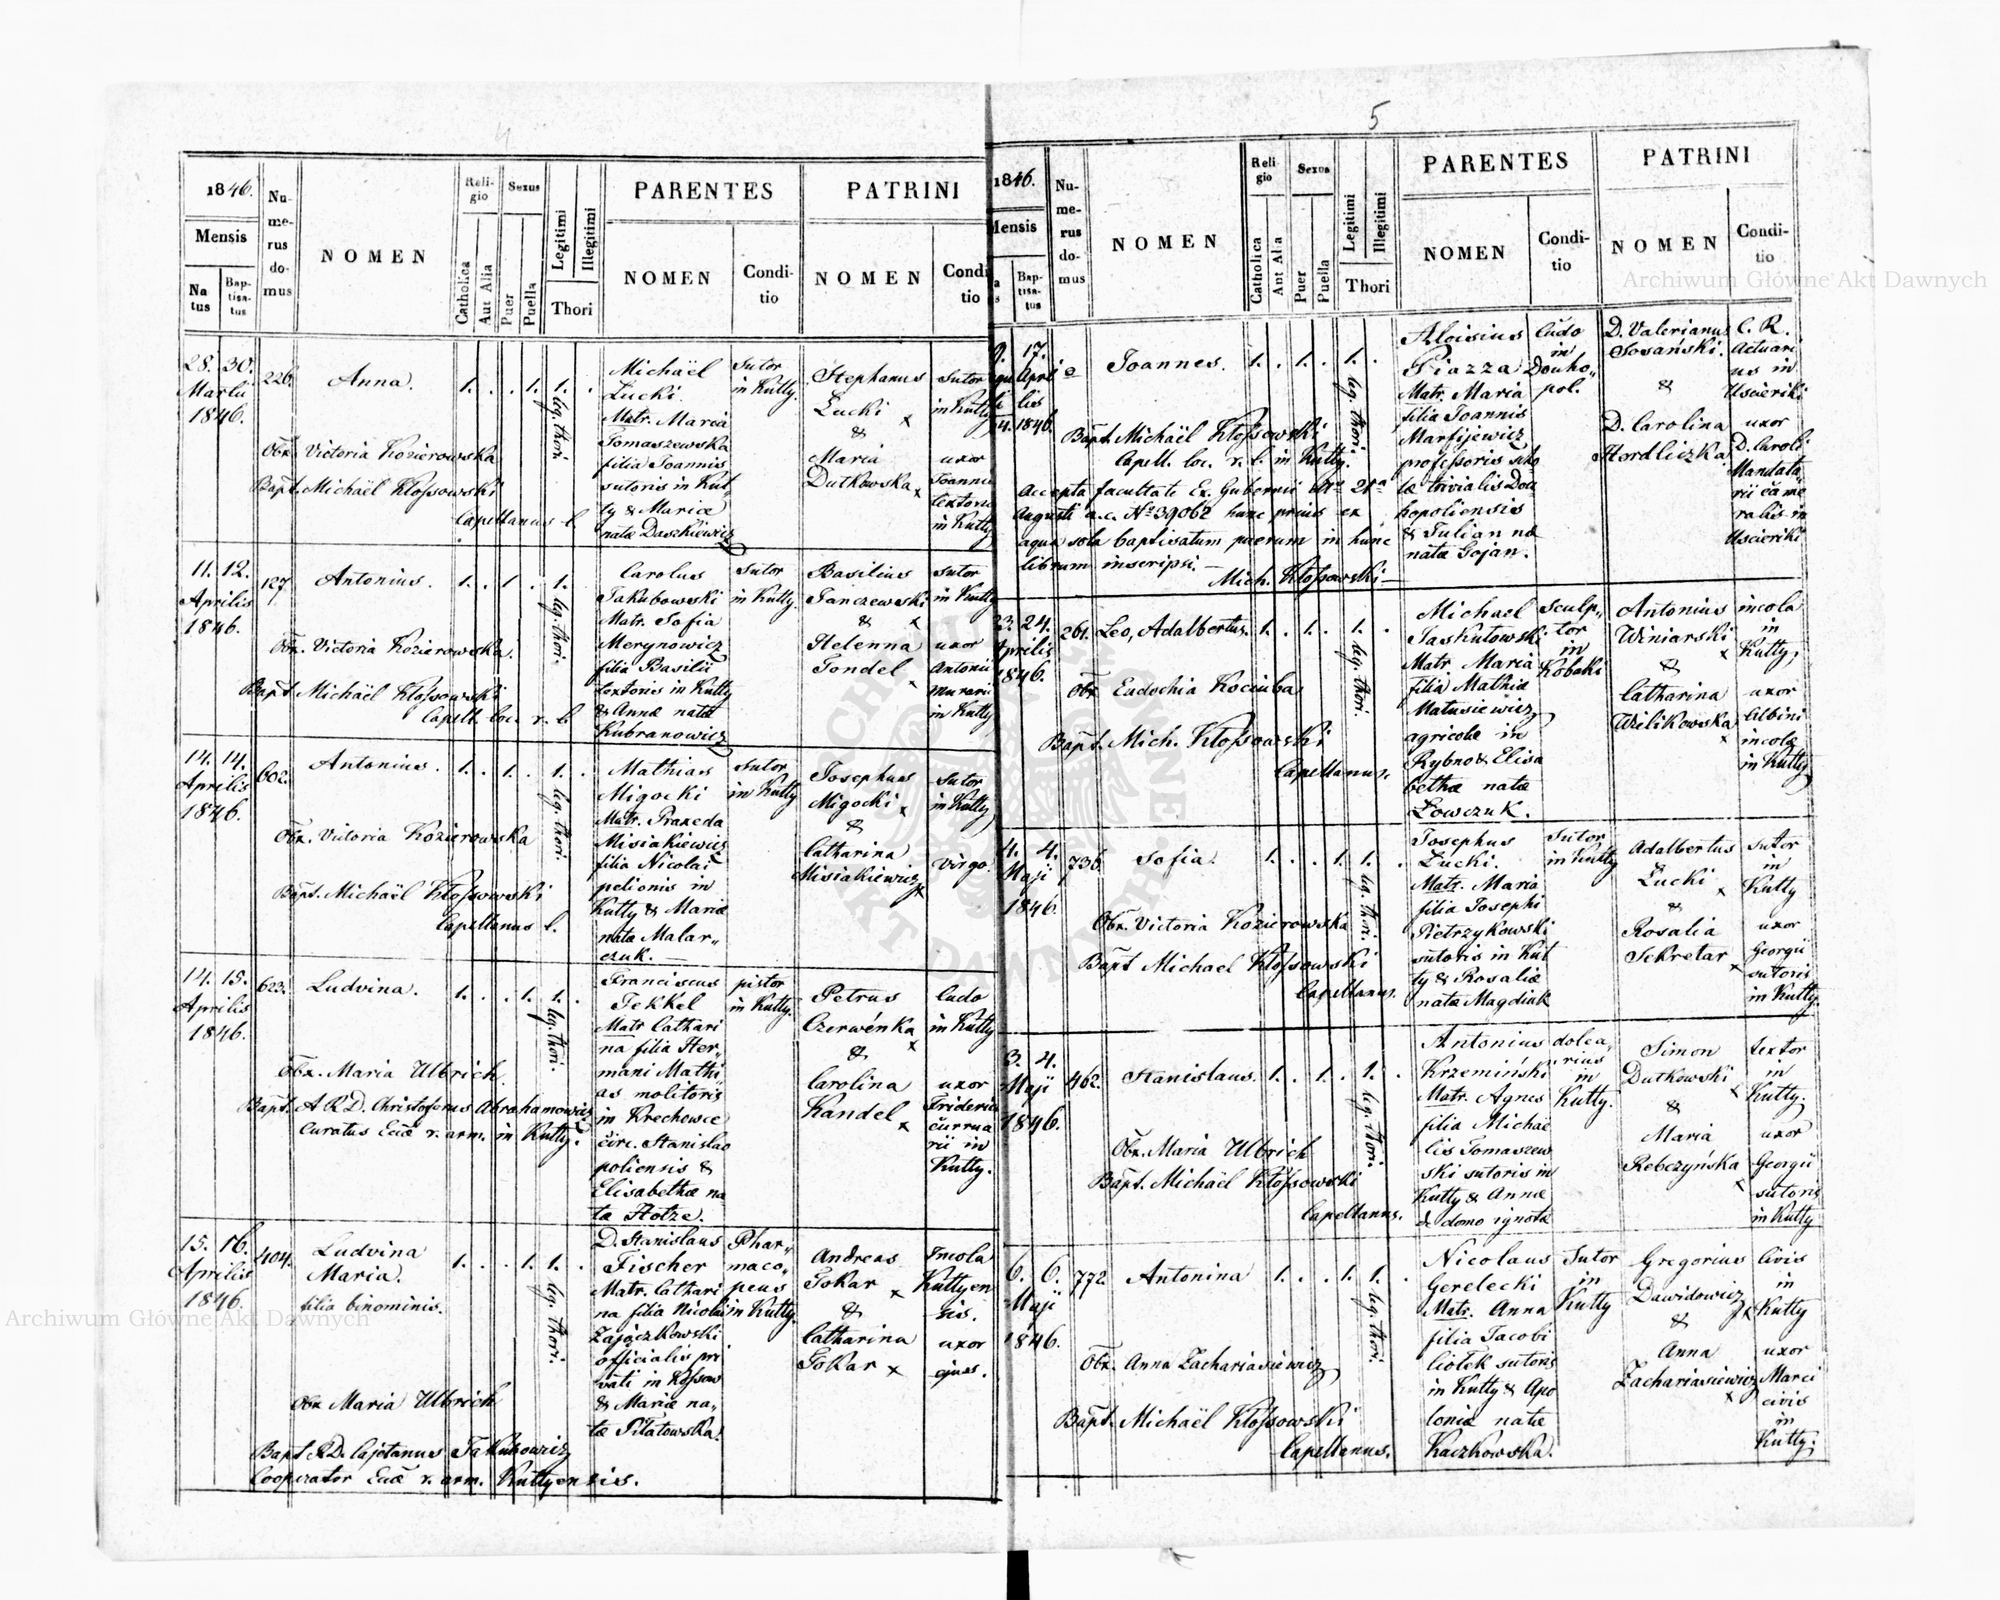 4
1846.
Mensis
Na
tus
Bap-
tisa-
tus
Nu-
me-
rus
do-
mus
NOMEN
Reli-
gio
Catholica
Aut Alia
Sexus
Puer
Puella
Legitimi
Illegitimi
Thori
PARENTES
NOMEN
Condi-
tio
PATRINI
NOMEN
Condi
tio
28. 30.
Martii
1846.
226.
Anna.
1. . . 1. 1. .
leg. thori.
Obx. Victoria Kozierowska
Bapt. Michaël Kłossowski
Capellanus l.
Michaël
Łucki.
Matr. Maria
Tomaszewska
filia Joannis
sutoris in Kut-
ty & Mariæ
natæ Daszkiewicz
Sutor
in Kutty.
Stephanus
Łucki x
&
Maria
Dutkowska x
Sutor
in Kutty
uxor
Joannis
textoris
in Kutty
11. 12.
Aprilis
1846.
127.
Antonius.
1. . 1 . 1.
leg. thori.
Obx. Victoria Kozierowska.
Bapt. Michaël Kłossowski
Capell. loc. r. l.
Carolus
Jakubowski
Matr. Sofia
Merynowicz
filia Basilii
textoris in Kutty
& Annæ natæ
Kubranowicz
Sutor
in Kutty.
Basilius
Janczewski
& x
Helenna
Gondel x
Sutor
in Kutty
uxor
Antonii
murarii
in Kutty
14. 14.
Aprilis
1846.
602.
Antonius.
1. . 1. . 1. .
leg. thori.
Obx. Victoria Kozierowska
Bapt. Michaël Kłossowski
Capellanus l.
Mathias
Migocki
Matr. Praxeda
Misiakiewicz
filia Nicolai
pelionis in
Kutty & Mariæ
natæ Malar-
czuk.
Sutor
in Kutty
Josephus
Migocki x
&
Catharina
Misiakiewicz x
Sutor
in Kutty
virgo.
14. 15.
Aprilis
1846.
623.
Ludvina.
1. . . 1. 1. .
leg. thori.
Obx. Maria Ulbrich.
Bapt. A. R. D. Christoforus Abrahamowicz
Curatus Eccæ r. arm. in Kutty.
Franciscus
Jekkel
Matr. Cathari
na filia Her-
mani Mathi
as molitoris
in Krechowce
circ. Stanislao
poliensis &
Elisabethæ na
tæ Hotze.
pistor
in Kutty.
Petrus
Czerwénka
& x
Carolina
Kandel x
ludo
in Kutty
uxor
Friderici
currua
rii in
Kutty.
15. 16.
Aprilis
1846.
404.
Ludvina
Maria.
filia binominis.
1. . . 1. 1. .
leg. thori.
Obx Maria Ulbrich
Bapt. R. D. Cajetanus Jakubowicz
Cooperator Eccæ r. arm. Kuttyensis.
D. Stanislaus
Fischer
Matr. Cathari
na filia Nicolai
Zajączkowski
officialis pri
vati in Kossow
& Mariæ na-
tæ Piłatowska.
Phar-
maco-
peus
in Kutty.
Andreas
Tokar x
&
Catharina
Tokar x
Incola
Kuttyen
sis.
uxor
ejus.
5
1846.
Mensis
Bap-
tisa-
tus
Nu-
me-
rus
do-
mus
NOMEN
Reli-
gio
Catholica
Aut Alia
Sexus
Puer
Puella
Legitimi
Illegitimi
Thori
PARENTES
NOMEN
Condi-
tio
PATRINI
NOMEN
Condi-
tio
9. 17.
Apri
lis
1846.
Joannes.
1. . 1. . 1. .
leg. thori.
Bapt. Michaël Kłossowski
Capell. loc. r. l. in Kutty.
Accepta facultate Ex. Gubernii
Augusti a. c. No 39062 hunc prius ex
aqua sola baptisatum puerum in hunc
librum inscripsi.
Mich. Kłossowski
Aloisius
Piazza
Matr. Maria
filia Joannis
Marfijewicz
professoris scho
læ trivialis Dou
hopoliensis
& Julian næ
natæ Gojan.
ludo
in
Douho-
pol.
D. Valerianus
Sosański.
&
D. Carolina
Hordliczka
C. R.
Actuari
us in
Uscieriki
uxor
D. Caroli
Mandata
rii came
ralis in
Uscieriki
23. 24.
Aprilis
1846.
261.
Leo, Adalbertus.
1. . 1. . 1. .
leg. thori.
Obx Eudochia Kociuba
Bapt. Mich. Kłossowski
Capellanus.
Michael
Jaskutowski
Matr Maria
filia Mathiæ
Matusiewicz
agricolæ in
Rybno & Elisa
bethæ natæ
Łowczuk.
Sculp-
tor
in
Kobaki
Antonius
Winiarski
& x
Catharina
Wilikowska x
incola
in
Kutty,
uxor
Albini
incolæ
in Kutty
4. 4.
Maji
1846.
736
Sofia.
1. . . 1. 1. .
leg. thori.
Obx. Victoria Kozierowska
Bapt Michael Kłossowski
Capellanus.
Josephus
Łucki.
Matr. Maria
filia Josephi
Pietrzykowski
sutoris in Kut
ty & Rosaliæ
natæ Magdiuk
Sutor
in Kutty
Adalbertus
Łucki x
&
Rosalia
Sekretar x
Sutor
in
Kutty
uxor
Georgii
sutoris
in Kutty.
3. 4.
Maji
1846.
462.
Stanislaus.
1. . 1. . 1. .
leg. thori.
Obx. Maria Ulbrich
Bapt. Michaël Kłossowski
Capellanus.
Antonius
Krzemiński
Matr. Agnes
filia Michae
lis Tomaszew
ski sutoris in
Kutty & Annæ
de domo ignotæ
dolea-
rius
in
Kutty.
Simon
Dutkowski x
&
Maria
Rebczyńska x
textor
in
Kutty.
uxor
Georgii
sutoris
in Kutty
6. 6.
Maji
1846.
772.
Antonina
1. . . 1. 1. .
leg. thori.
Obx. Anna Zachariasiewicz
Bapt. Michaël Kłossowski
Capellanus.
Nicolaus
Gerelecki
Matr. Anna
filia Jacobi
Ciołek sutoris
in Kutty & Apo
loniæ natæ
Kaczkowska.
Sutor
in
Kutty
Gregorius
Dawidowicz x
&
Anna
Zachariasiewicz x
Civis
in
Kutty
uxor
Marci
civis
in
Kutty.
Archiwum Główne Akt Dawnych
Archiwum Główne Akt Dawnych
ARCHIWUM GŁÓWNE AKT DAWNYCH